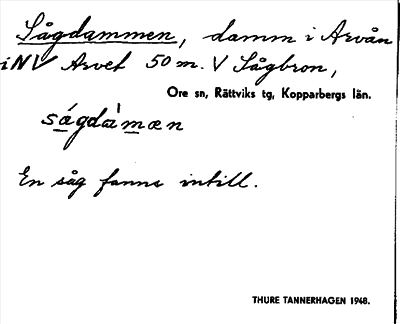 Sågdammen, damm i Arvån
i NV Arvet 50 m. V Sågbron,
Ore sn, Rättviks tg, Kopparbergs län.
ságdàmæn
En såg fanns intill.
THURE TANNERHAGEN 1948.